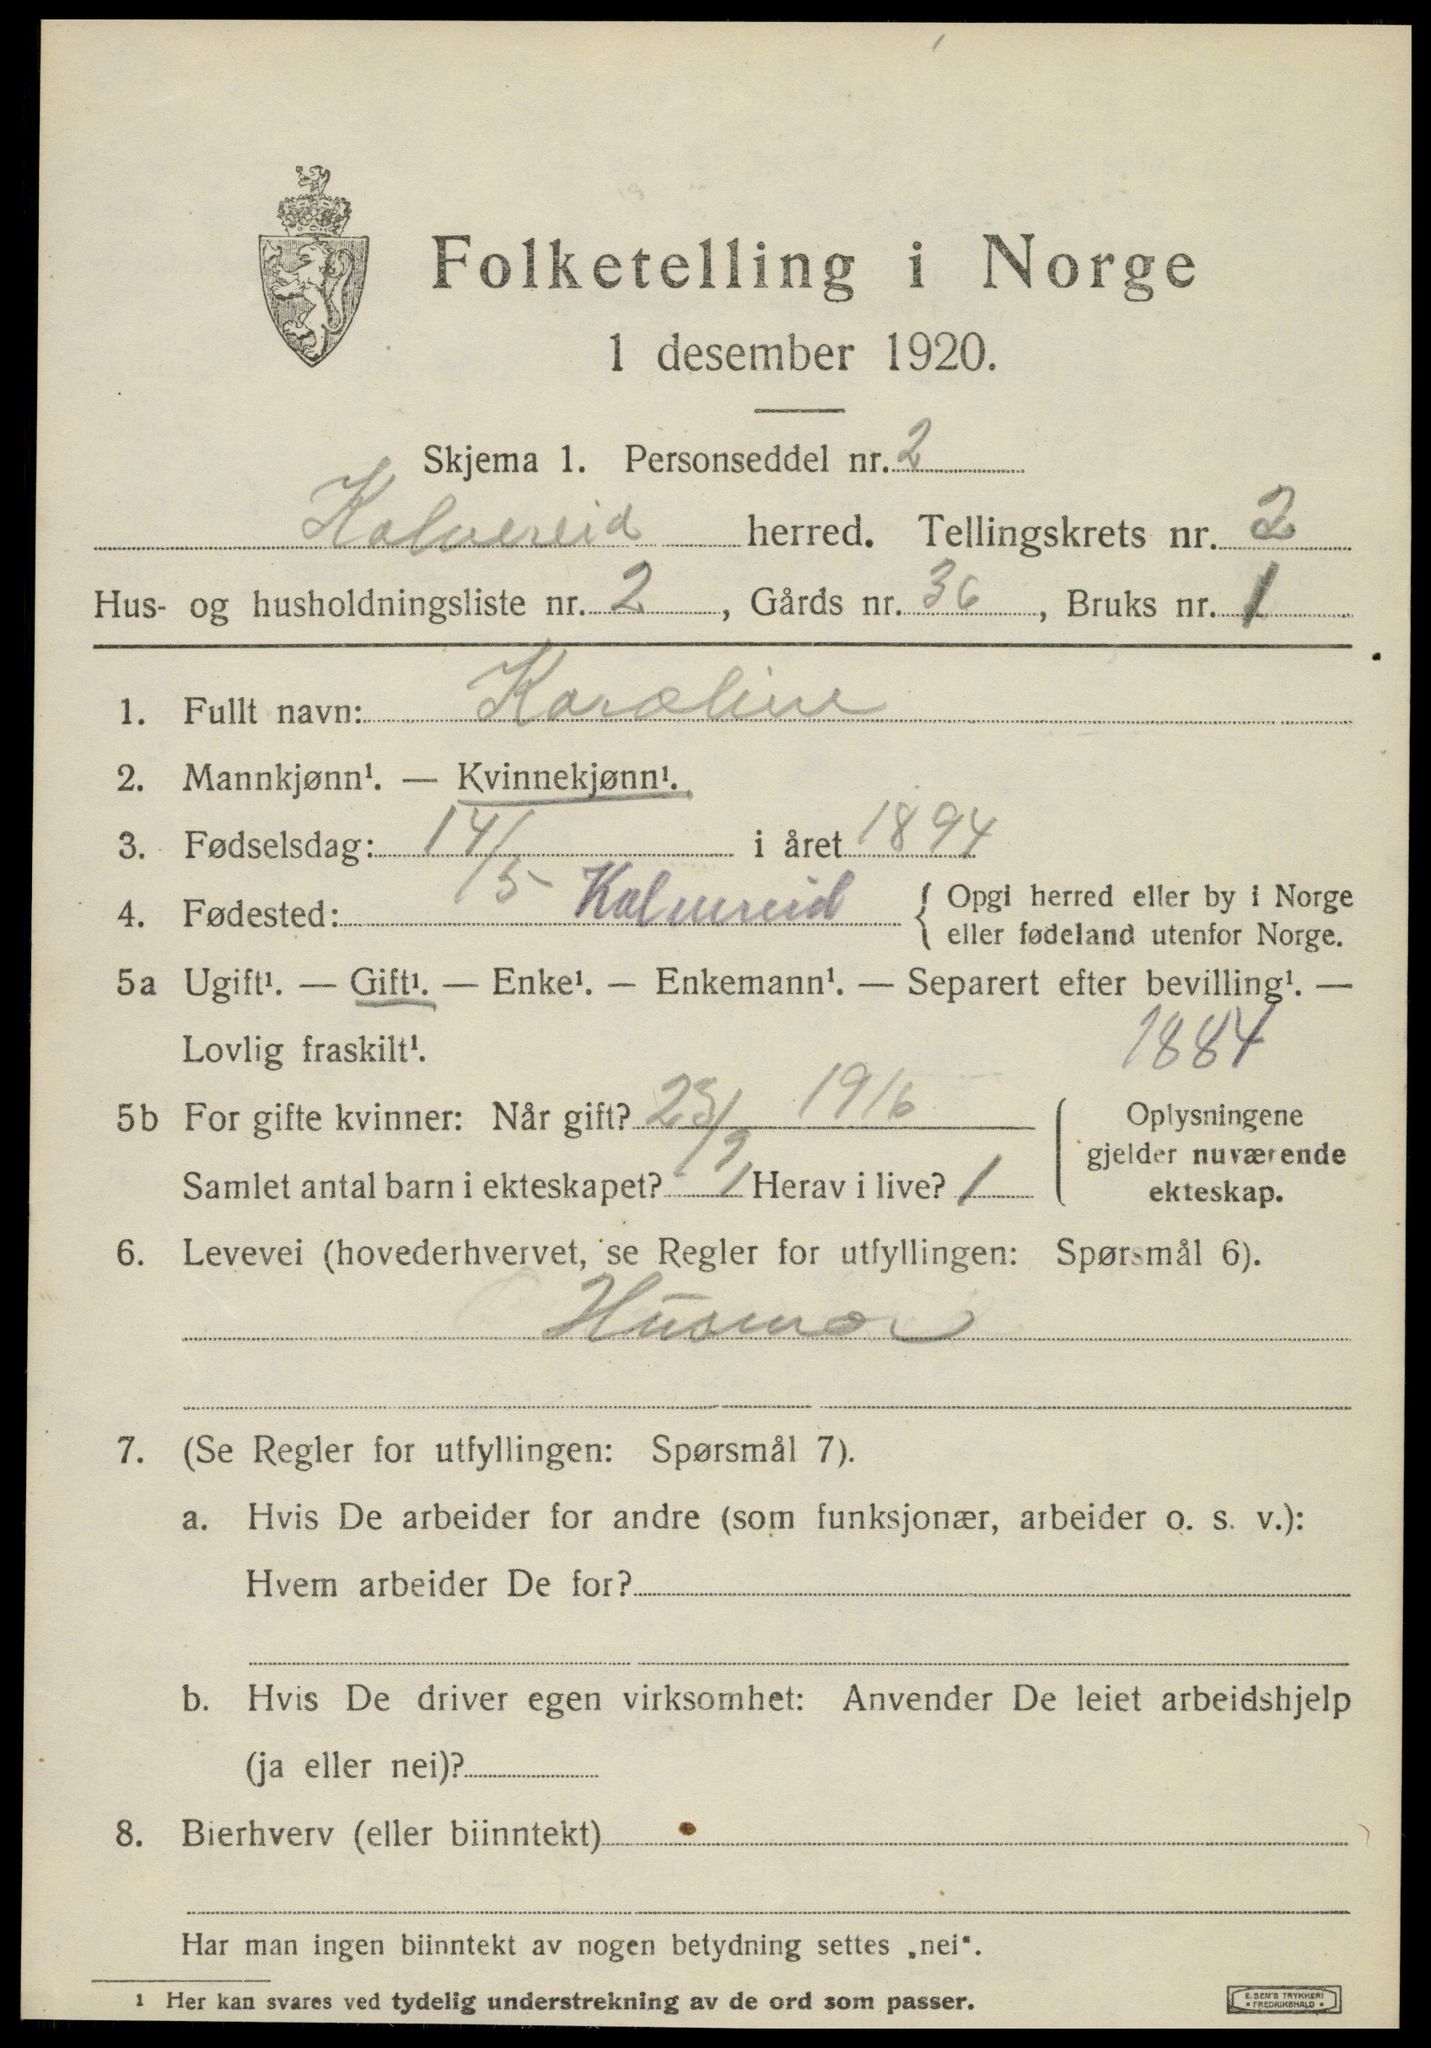 Folketelling i Norge
1 desember 1920.
Skjema 1. Personseddel nr. 2
Kalvereid herred. Tellingskrets nr. 2
Hus- og husholdningsliste nr. 2, Gårds nr. 36, Bruks nr. 1
1. Fullt navn: Karoline
2. Mannkjønn¹. — Kvinnekjønn¹.
3. Fødselsdag: 14/5 i året 1894
4. Fødested: Kalvereid { Opgi herred eller by i Norge
eller fødeland utenfor Norge.
5a Ugift¹. — Gift¹. — Enke¹. — Enkemann¹. — Separert efter bevilling¹. —
Lovlig fraskilt¹. 1884
5b For gifte kvinner: Når gift? 23/9 1916
Samlet antal barn i ekteskapet? 1 Herav i live? 1
Oplysningene
gjelder nuværende
ekteskap.
6. Levevei (hovederhvervet, se Regler for utfyllingen: Spørsmål 6).
Husmor
7. (Se Regler for utfyllingen: Spørsmål 7).
a. Hvis De arbeider for andre (som funksjonær, arbeider o. s. v.):
Hvem arbeider De for?
b. Hvis De driver egen virksomhet: Anvender De leiet arbeidshjelp
(ja eller nei)?
8. Bierhverv (eller biinntekt)
Har man ingen biinntekt av nogen betydning settes „nei".
1 Her kan svares ved tydelig understrekning av de ord som passer.
E. SEM'S TRYKKERI
• FREDRIKSHALD •